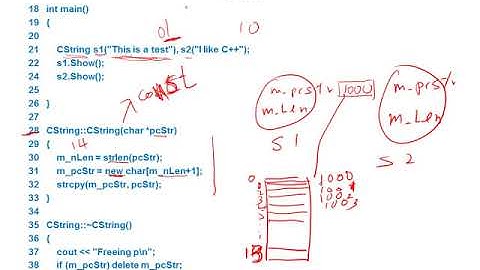 18 int main()
19 {
20
21 CString s1("This is a test"), s2("I like C++");
22 s1.Show();
23 s2.Show();
24
25
26 }
27
28 CString::CString(char *pcStr)
29 {
30 m_nLen = strlen(pcStr);
31 m_pcStr = new char[m_nLen+1];
32 strcpy(m_pcStr, pcStr);
33 }
34
35 CString::~CString()
36 {
37 cout << "Freeing p\n";
38 if (m_pcStr) delete m_pcStr;
10
const
14
1000
m_Len
S1
m_Len
S2
0
1000
1003